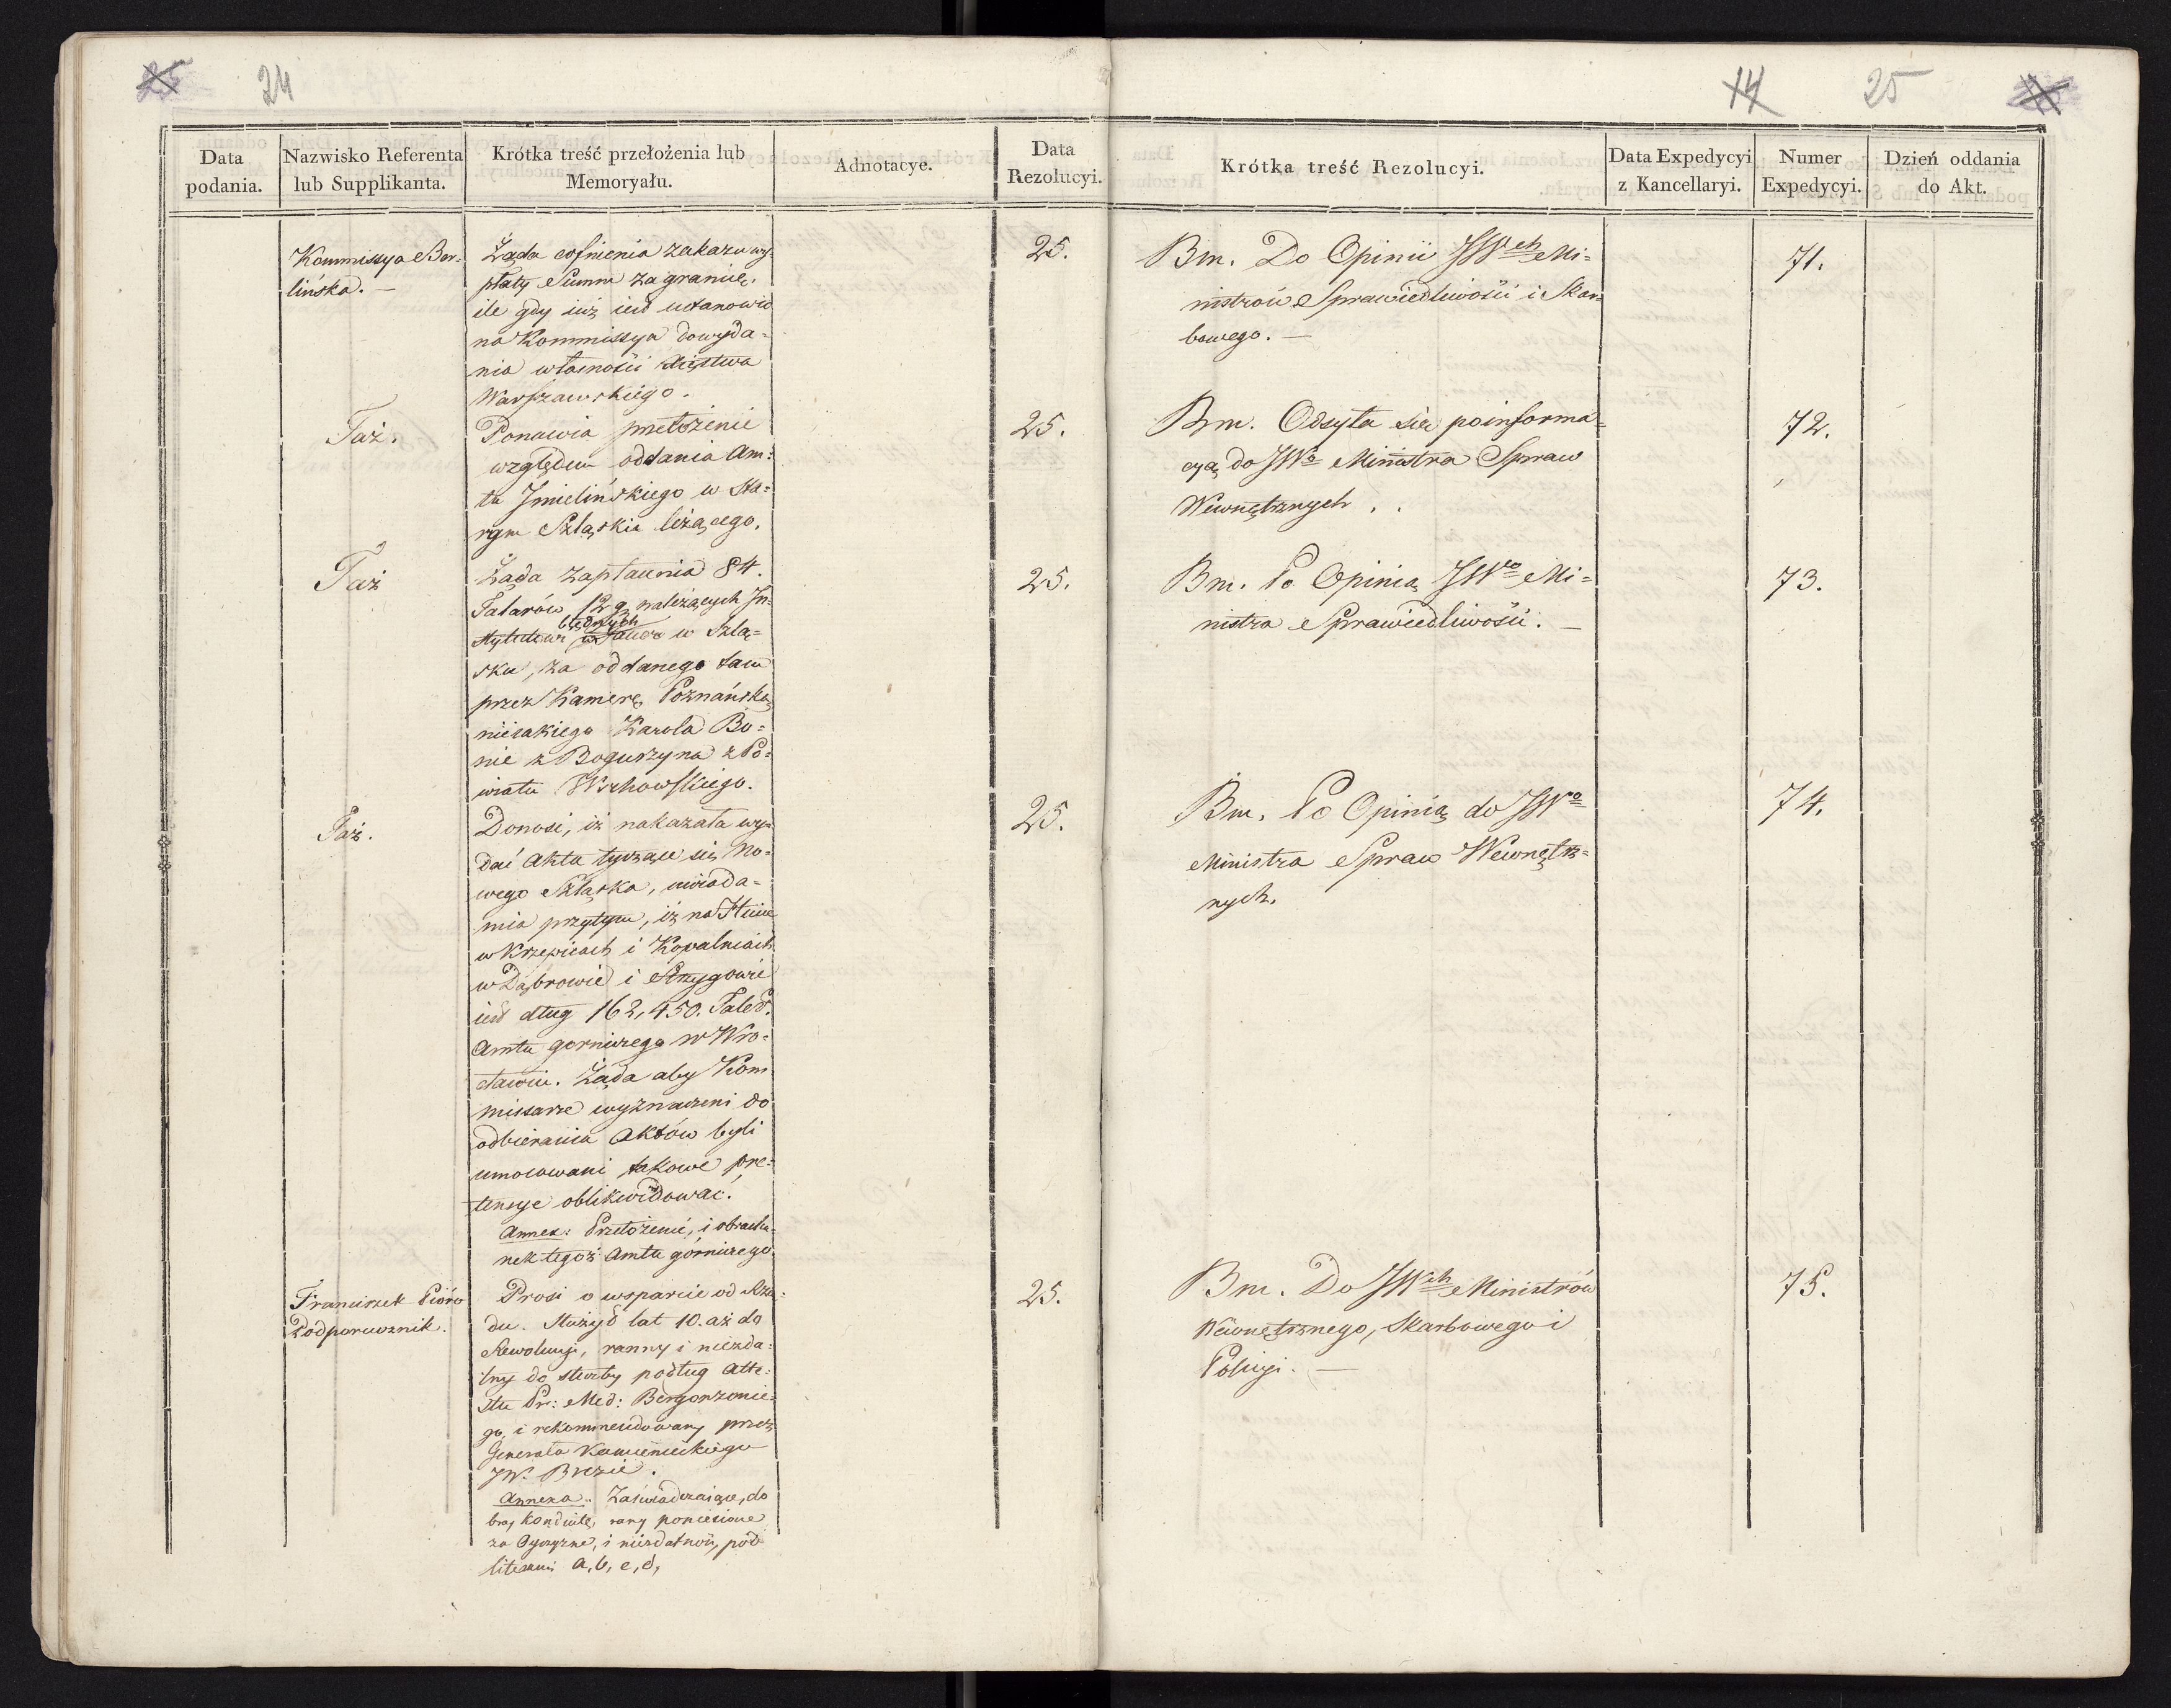 25 24
14 25
Data podania.
Nazwisko Referenta lub Supplikanta.
Krótka treść przełożenia lub Memoryału.
Adnotacye.
Data Rezolucyi.
Krótka treść Rezolucyi.
Data Expedycyi z Kancellaryi.
Numer Expedycyi.
Dzień oddania do Akt.
Kommissya Ber-
lińska. —
Żąda cofnienia zakazu wy-
płaty Summ za granicę,
ile gdy iuż iest ustanowio
na Kommissya do wyda-
nia własności Xięstwa
Warszawskiego.
25.
Bm. Do Opinii JWch Mi-
nistrów Sprawiedliwości i Skar-
bowego. —
71.
Taż.
Ponawia przełożenie
względem oddania Am-
tu Imielińskiego w Sta-
rym Szląsku leżącego.
25.
Bm. Odsyła się po informa-
cyą do JWo Ministra Spraw
Wewnętrznych.
72.
Taż
Żąda zapłacenia 84.
Talarów 12 g. należących In-
stytutowi obłędnych w Szlą-
sku, za oddanego tam
przez Kamerę Poznańską
nieiakiego Karola Bo-
nie z Boguszyna z Po-
wiatu Wschowskiego.
25.
Bm. Po Opinią JWo Mi-
nistra Sprawiedliwości. —
73.
Taż.
Donosi, iż nakazała wy-
dać akta tyczące się No-
wego Szląska, uwiada-
mia przytym, iż na Hucie
w Krzepicach i Kopalniach
w Dąbrowie i Strzyżowie
iest dług 162,450. Taler.
Amtu gorniczego w Wro-
cławiu. Żąda aby Kom
missarze wyznaczeni do
odbierania Aktów byli
umocowani takowe pre-
tensye oblikwidować.
Annex: Przełożenie, i obrachu-
nek tegoż Amtu górniczego.
25.
Bm. Po Opinią do JWo
Ministra Spraw Wewnętrz-
nych.
74.
Franciszek Pióro
Podporucznik.
Prosi o wsparcie od Rzą-
du. Służył lat 10. aż do
Rewolucyi, ranny i niezda-
tny do służby podług atte-
stu Pr: Med: Bergonzonie-
go, i rekommendowany przez
Generała Kamienieckiego
JW. Brezie.
Annexa. Zaświadczaiące, do
brą konduitę, rany poniesione
za Oyczyznę, i niezdatność, pod
literami a, b, c, d,
25.
Bm. Do JWch Ministrów
Wewnętrznego, Skarbowego i
Policyi. —
75.